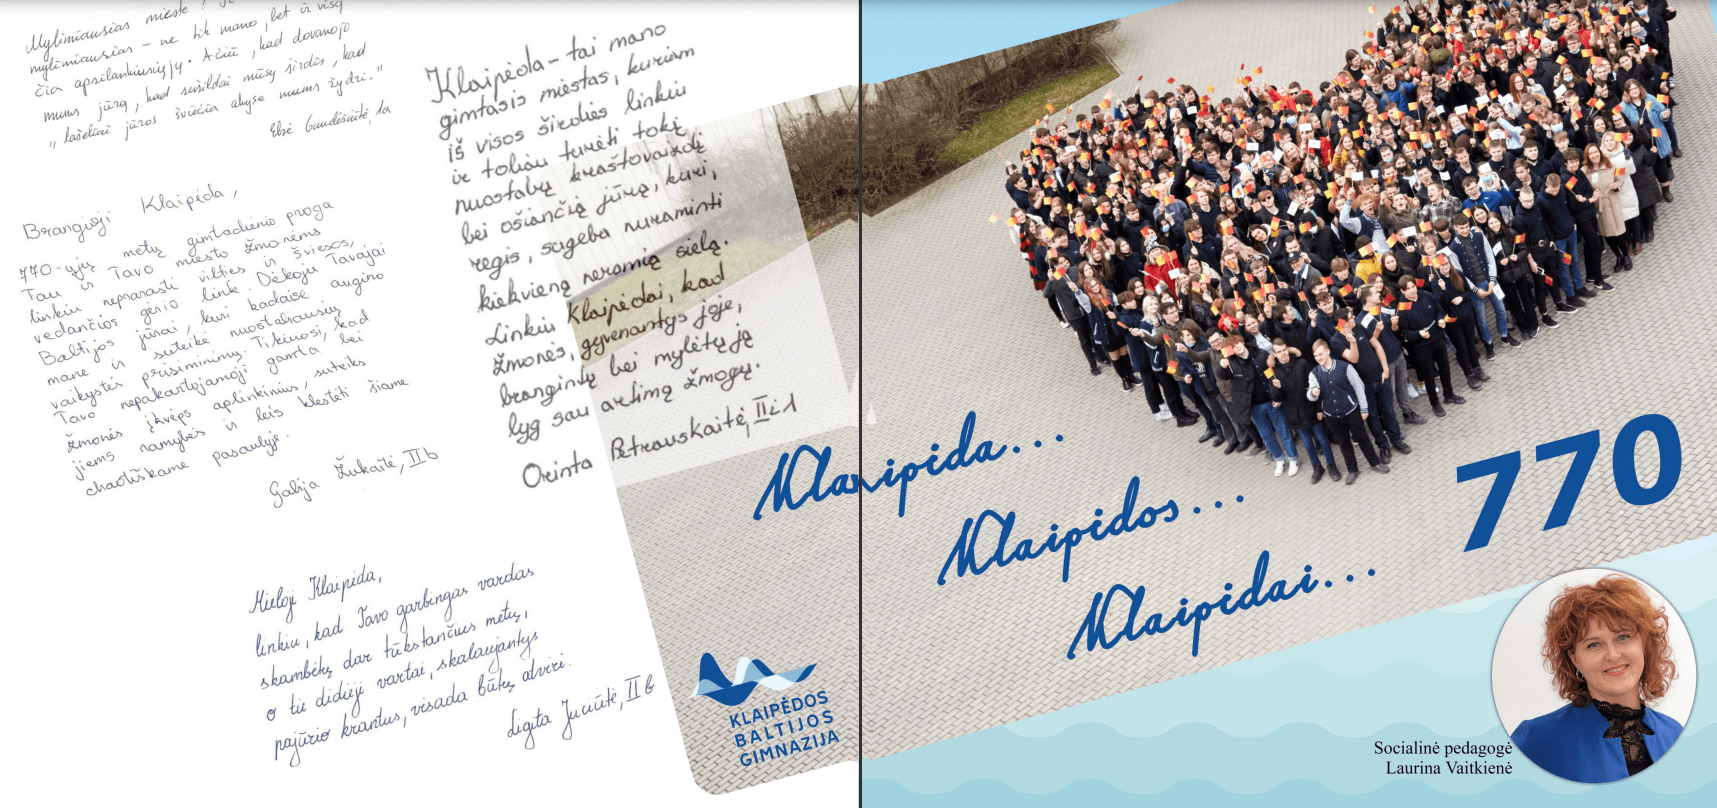 Mylimiausias mieste!
mylimiausias – ne tik mano, bet ir visų
čia apsilankiusiųjų. Ačiū, kad dovanojo
mums jūrą, kad sušildai mūsų širdis, kad
„lašeliai jūros šviečia akyse mums žydri."
Elzė Gaudėšiūtė, 1a
Brangioji Klaipėda,
770-ųjų metų gimtadienio proga
Tau ir Tavo miesto žmonėms
linkiu neprarasti vilties ir šviesos,
vedančios gėrio link. Dėkoju Tavajai
Baltijos jūrai, kuri kadaise augino
mane ir suteikė nuostabiausių
vaikystės prisiminimų. Tikiuosi, kad
Tavo nepakartojamoji gamta bei
žmonės įkvėps aplinkinius, suteiks
jiems ramybės ir leis klestėti šiame
chaotiškame pasaulyje.
Gabija Žukaitė, IIb
Klaipėda – tai mano
gimtasis miestas, kuriam
iš visos širdies linkiu
ir toliau turėti tokį
nuostabų kraštovaizdį
bei ošiančią jūrą, kuri,
regis, sugeba nuraminti
kiekvieną neramią sielą.
Linkiu Klaipėdai, kad
žmonės, gyvenantys joje,
brangintų bei mylėtų ją
lyg sau artimą žmogų.
Orinta Petrauskaitė, II
Mieloji Klaipėda,
linkiu, kad Tavo garbingas vardas
skambėtų dar tūkstančius metų,
o tie didieji vartai, skalaujantys
pajūrio krantus, visada būtų atviri.
Ligita Juciūtė, II b
Klaipėda...
Klaipėdos...
Klaipėdai...
770
KLAIPĖDOS
BALTIJOS
GIMNAZIJA
Socialinė pedagogė
Laurina Vaitkienė